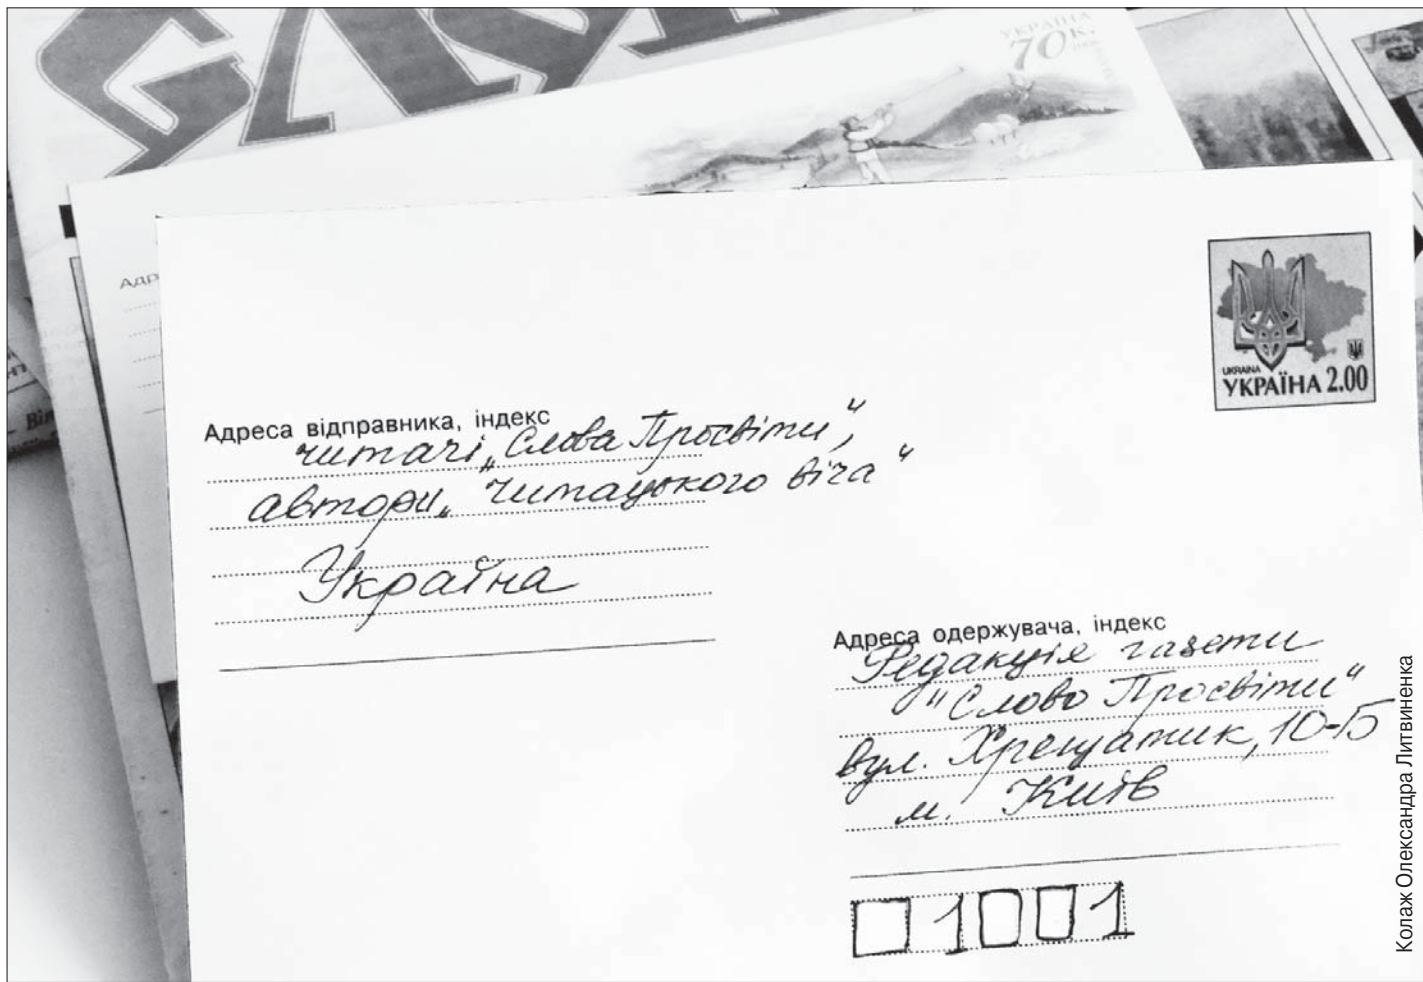 УКРАЇНА
70 К.
Адр
УКРАЇНА
УКRAINA
УКРАЇНА 2.00
Адреса відправника, індекс
читачі „Слова Просвіти”,
автори „Читацького віча”
Україна
Адреса одержувача, індекс
Редакція газети
"Слово Просвіти"
вул. Хрещатик, 10-Б
м. Київ
01001
Колаж Олександра Литвиненка